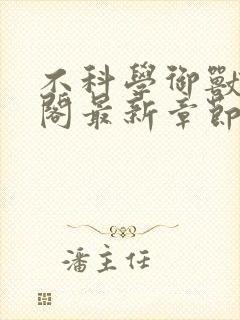 不科學御獸
閣最新章節
潘主任